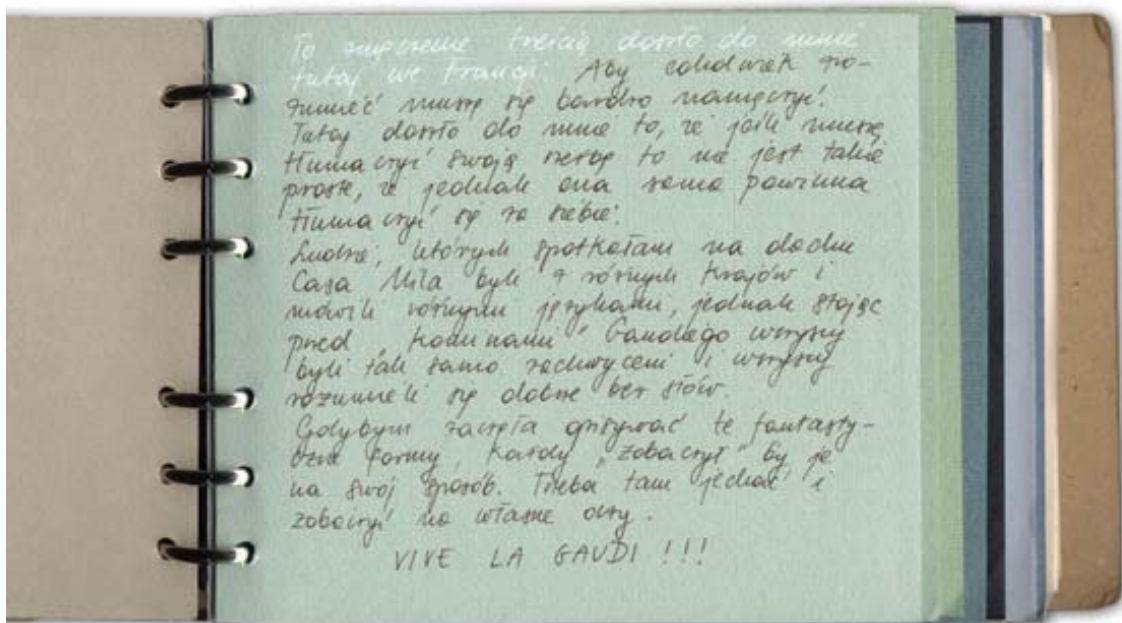 To zmęczenie treścią doszło do mnie
tutaj we Francji: Aby cokolwiek ro-
zumieć muszę się bardzo namęczyć!
Tutaj doszło do mnie to, że jeśli muszę
tłumaczyć swoją rzeźbę to nie jest takie
proste, że jednak ona sama powinna
tłumaczyć się za siebie:
Ludzie, których spotkałam na dachu
Casa Mila byli z różnych krajów i
mówili różnymi językami, jednak stojąc
przed „kominami" Gaudiego wszyscy
byli tak samo zachwyceni i wszyscy
rozumieli się dobrze bez słów.
Gdybym zaczęła opisywać te fantasty-
czne formy, każdy „zobaczył" by je
na swój sposób. Trzeba tam jechać i
zobaczyć na własne oczy.
VIVE LA GAUDI !!!